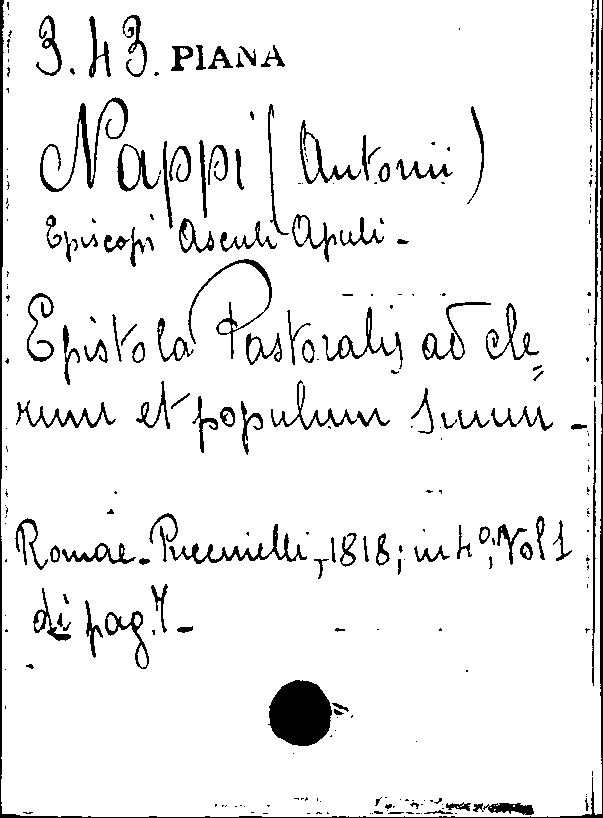 3.43. PIANA
Nappi (Antonii)
Episcopi Asculi Apuli -
Epistola Pastoralis ad cle=
rum et populum suum -
Romae - Puccinelli, 1818; in 4°, Vol 1
di pag. 7 -